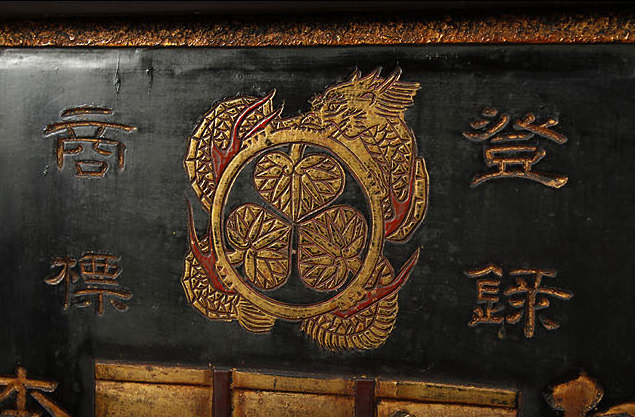 登録
商標